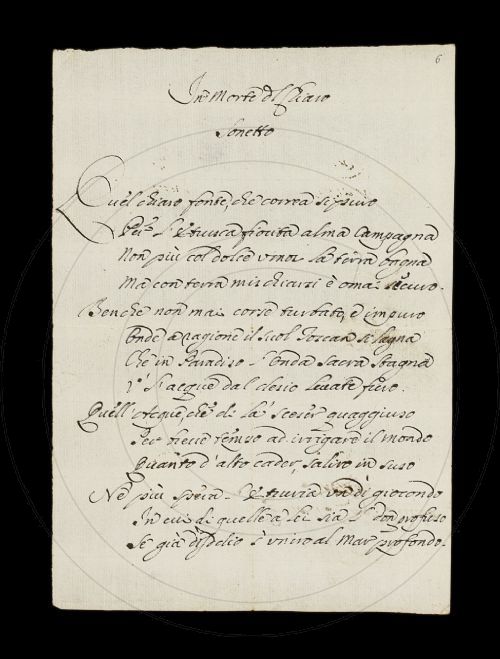 6
In Morte del Chiaro
Sonetto
Quel chiaro fonte, che correa sì puro
Per l'Etrusca fiorita alma Campagna
Non più col dolce umor la terra bagna
Ma con terra mischiarsi è omai
Benche non mai corse turbato, è impuro
Onde a ragione il suol Toscan si lagna
Che in Paradiso l'onda sacra stagna
l'acque dal Cielo
Quell' Acque, che di là sceser quaggiuso
Per breve tempo ad irrigare il mondo
Quanto d'alto cader, saliro in suso
Ne più spera Etruria un dì giocondo
In cui di quelle a lei sia il don profuso
Se già al Mar profondo.